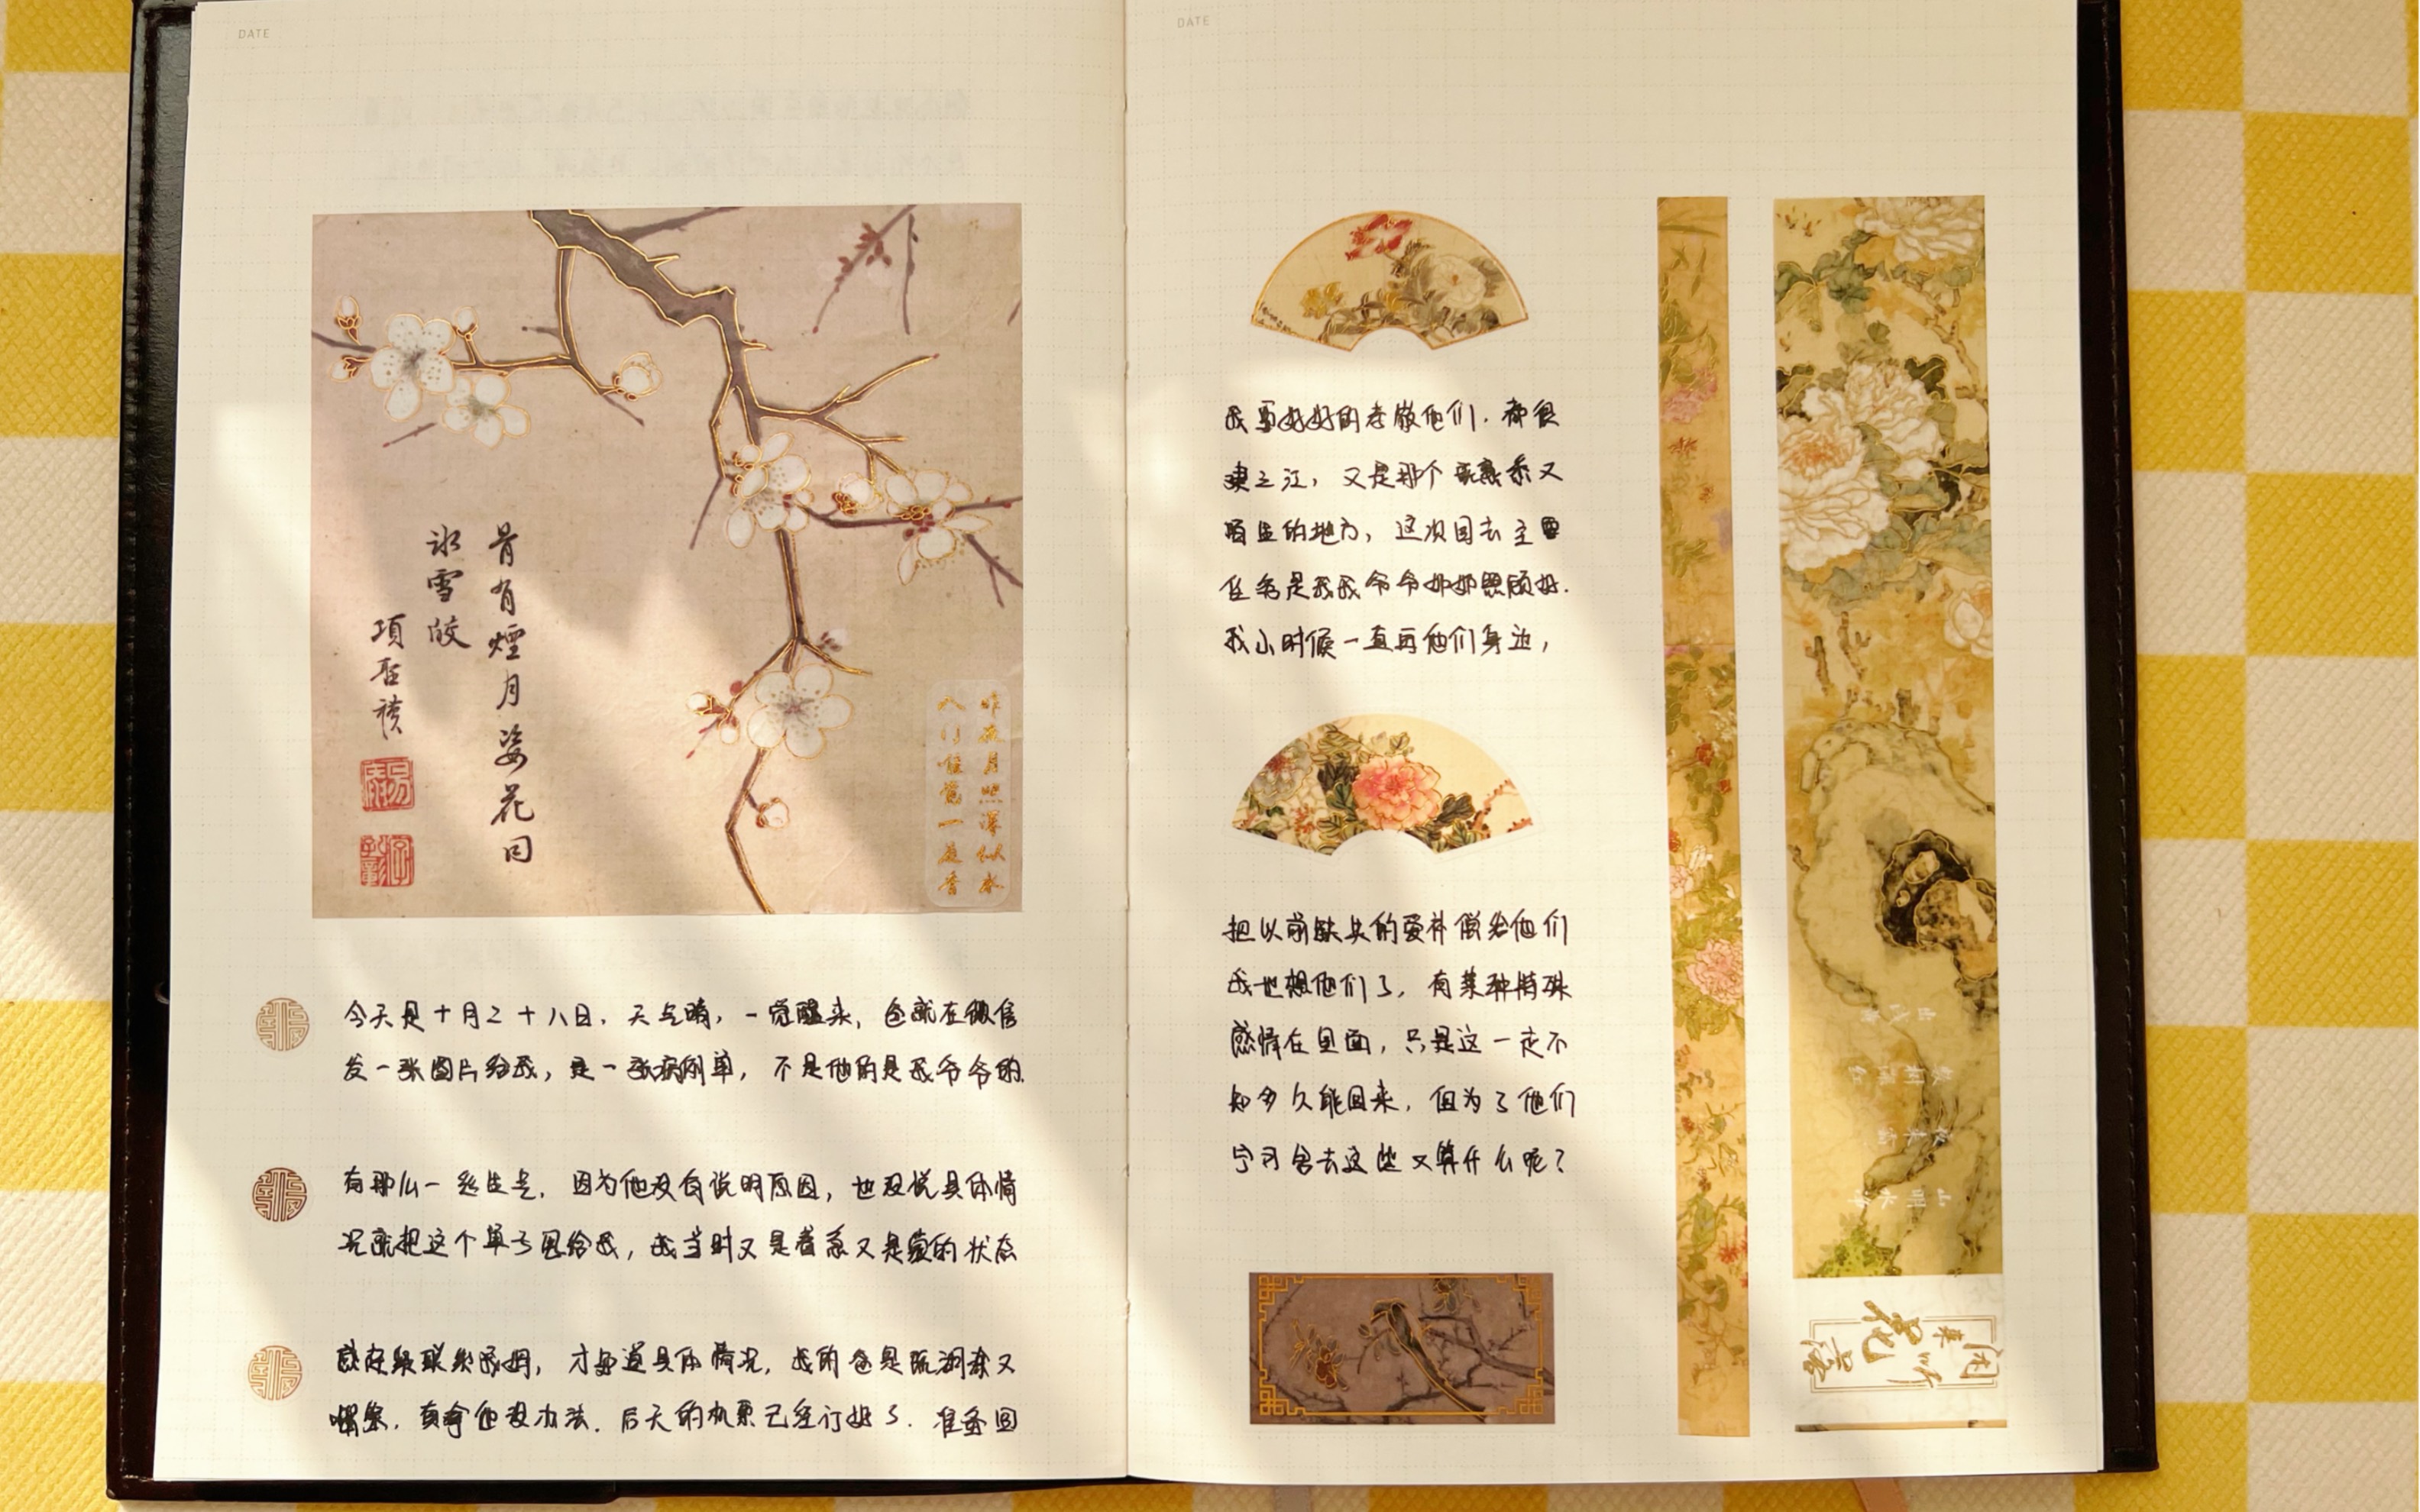 DATE
骨有煙月姿花同
冰雪皎
項聖謨
昨夜月照深似水
入门惟觉一庭香
今天是十月二十八日,天气晴,一觉醒来,爸就在微信
发一张图片给我,是一张病例单,不是他的是我爷爷的.
有那么一丝生气,因为他没有说明原因,也没说具体情
况就把这个单子甩给我,我当时又是着急又是蒙的状态
联系我姐,才知道具体情况,我的爸是
真拿他没办法.后天的机票已经订好了.准备回
DATE
我要好好的孝敬他们.
之江,又是那个熟悉又
陌生的地方,这次回去主要
任务是我爷爷奶奶照顾好.
我小时候一直再他们身边,
把以前缺失的爱补偿给他们
我也想他们了,有某种特殊
感情在里面,只是这一走不
知多久能回来,但为了他们
宁可舍去这些又算什么呢?
闲来听花露